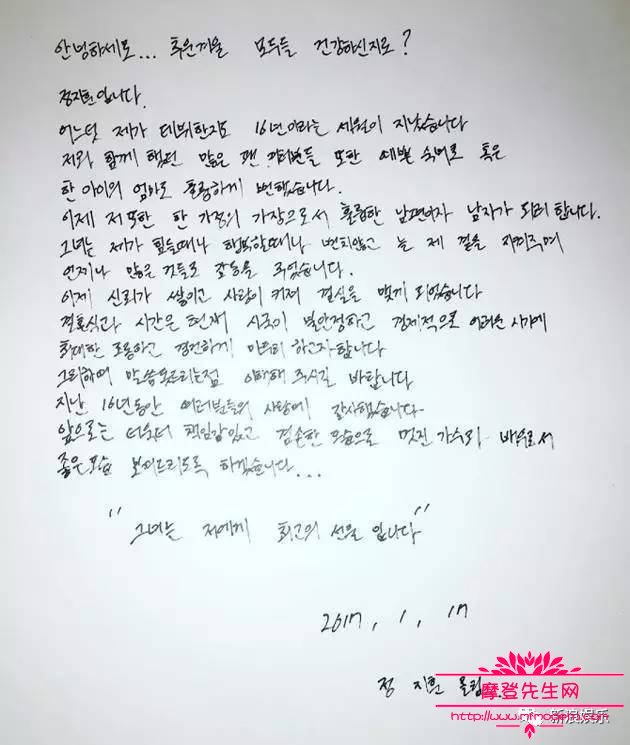 안녕하세요... 추운겨울 모두들 건강하신지요?
정지훈입니다.
어느덧 제가 데뷔한지도 16년이라는 세월이 지났습니다
저와 함께 했던 많은 팬 여러분들 또한 예쁜 숙녀로 혹은
한 아이의 엄마로 훌륭하게 변했습니다.
이제 저 또한 한 가정의 가장으로서 훌륭한 남편이자 남자가 되려 합니다.
그녀는 제가 힘들때나 행복할때나 변치않고 늘 제 곁을 지켜주며
언제나 많은 것들로 감동을 주었습니다.
이제 신뢰가 쌓이고 사랑이 커져 결실을 맺게 되었습니다
결혼식과 시간은 현재 시국이 불안정하고 경제적으로 어려운 시기에
최대한 조용하고 경건하게 마무리 하고자합니다
그리하여 말씀못드리는점 이해해 주시길 바랍니다
지난 16년동안 여러분들의 사랑에 감사했습니다
앞으로는 더욱더 책임감있고 겸손한 모습으로 멋진 가수와 배우로서
좋은모습 보여드리도록 하겠습니다...
"그녀는 저에게 최고의 선물 입니다"
2017, 1, 17
정 지훈 올림..
摩登先生网
新浪娱乐